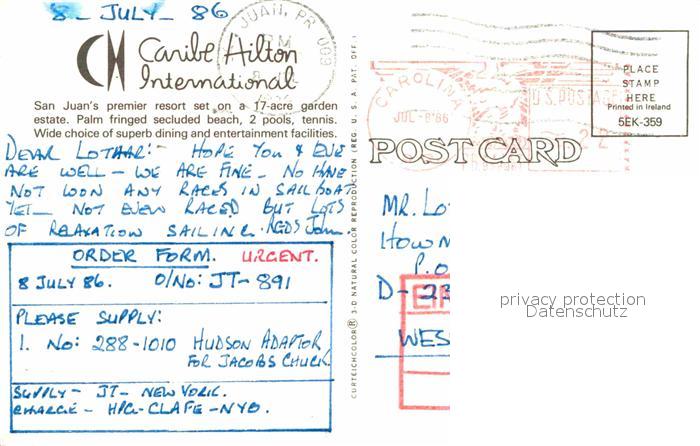 8 - JULY - 86
JUAN, PR 009
PM
CH Caribe Hilton
International
San Juan's premier resort set on a 17-acre garden
estate. Palm fringed secluded beach, 2 pools, tennis.
Wide choice of superb dining and entertainment facilities.
DEAR LOTHAR:- HOPE YOU & EVE
ARE WELL - WE ARE FINE - NO HAVE
NOT WON ANY RACES IN SAIL BOAT
YET - NOT EVEN RACED BUT LOTS
OF RELAXATION SAILING. REGDS John.
ORDER FORM. URGENT.
8 JULY 86. O/No: JT-891
PLEASE SUPPLY:
1. No: 288-1010 HUDSON ADAPTOR
FOR JACOBS CHUCK
SUPPLY - JT - NEW YORK.
CHARGE - HPC-CLAFE-NYO.
CURTEICHCOLOR® 3-D NATURAL COLOR REPRODUCTION (REG. U.S.A. PAT. OFF.)
CAROLINA
JUL -8'86
U.S. POSTAGE
PLACE
STAMP
HERE
Printed in Ireland
5EK-359
POST CARD
MR. LO
HOWM
P.O
D - 23
WES
privacy protection
Datenschutz